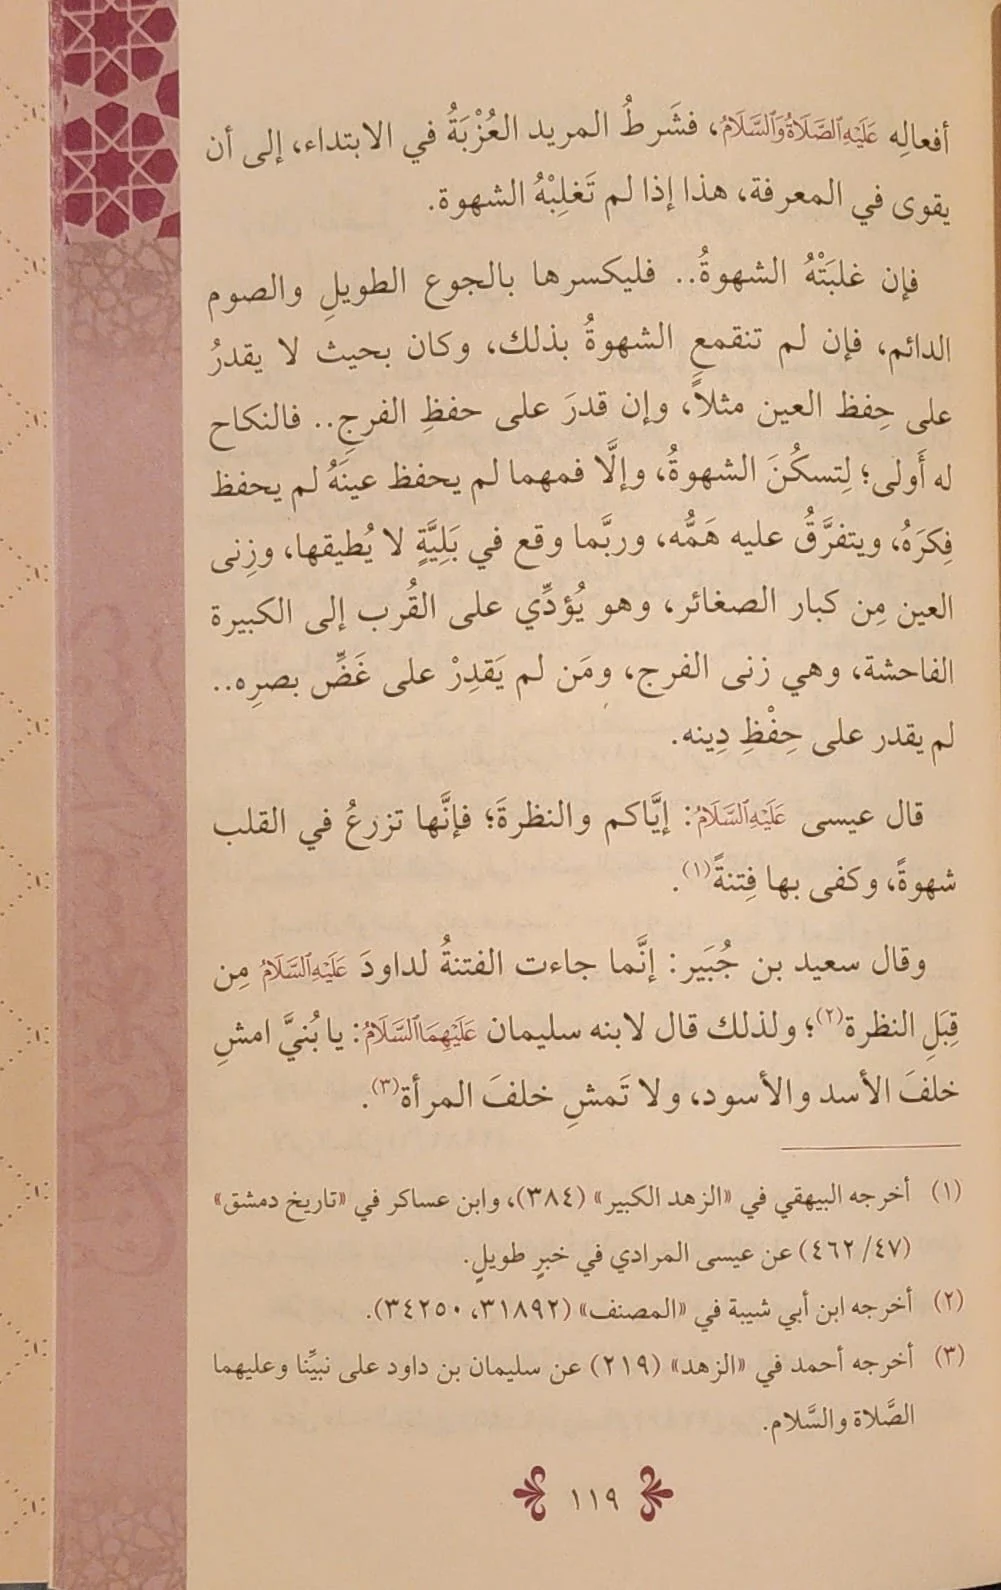 أفعالِه عَلَيْهِ الصَّلَاةُ وَالسَّلَامُ، فشَرطُ المريد العُزْبَةُ في الابتداء، إلى أن
يقوى في المعرفة، هذا إذا لم تَغلِبْهُ الشهوة.
فإن غلبَتْهُ الشهوةُ.. فليكسرها بالجوع الطويلِ والصوم
الدائم، فإن لم تنقمعِ الشهوةُ بذلك، وكان بحيث لا يقدرُ
على حِفظ العين مثلاً، وإن قدرَ على حفظِ الفرجِ.. فالنكاح
له أَولى؛ لِتسكُنَ الشهوةُ، وإلَّا فمهما لم يحفظ عينَهُ لم يحفظ
فِكرَهُ، ويتفرَّقُ عليه هَمُّه، وربَّما وقع في بَلِيَّةٍ لا يُطيقها، وزِنى
العين مِن كبار الصغائر، وهو يُؤدِّي على القُرب إلى الكبيرة
الفاحشة، وهي زنى الفرج، ومَن لم يَقدِرْ على غَضِّ بصرِه..
لم يقدر على حِفْظِ دِينه.
قال عيسى عَلَيْهِ السَّلَامُ: إيَّاكم والنظرةَ؛ فإنَّها تزرعُ في القلب
شهوةً، وكفى بها فِتنةً(١).
وقال سعيد بن جُبَير: إنَّما جاءت الفتنةُ لداودَ عَلَيْهِ السَّلَامُ مِن
قِبَلِ النظرة(٢)؛ ولذلك قال لابنه سليمان عَلَيْهِمَا السَّلَامُ: يا بُنيَّ امشِ
خلفَ الأسد والأسود، ولا تَمشِ خلفَ المرأة(٣).
(١) أخرجه البيهقي في «الزهد الكبير» (٣٨٤)، وابن عساكر في «تاريخ دمشق»
(٤٧/ ٤٦٢) عن عيسى المرادي في خبرٍ طويلٍ.
(٢) أخرجه ابن أبي شيبة في «المصنف» (٣١٨٩٢، ٣٤٢٥٠).
(٣) أخرجه أحمد في «الزهد» (٢١٩) عن سليمان بن داود على نبيِّنا وعليهما
الصَّلاة والسَّلام.
١١٩